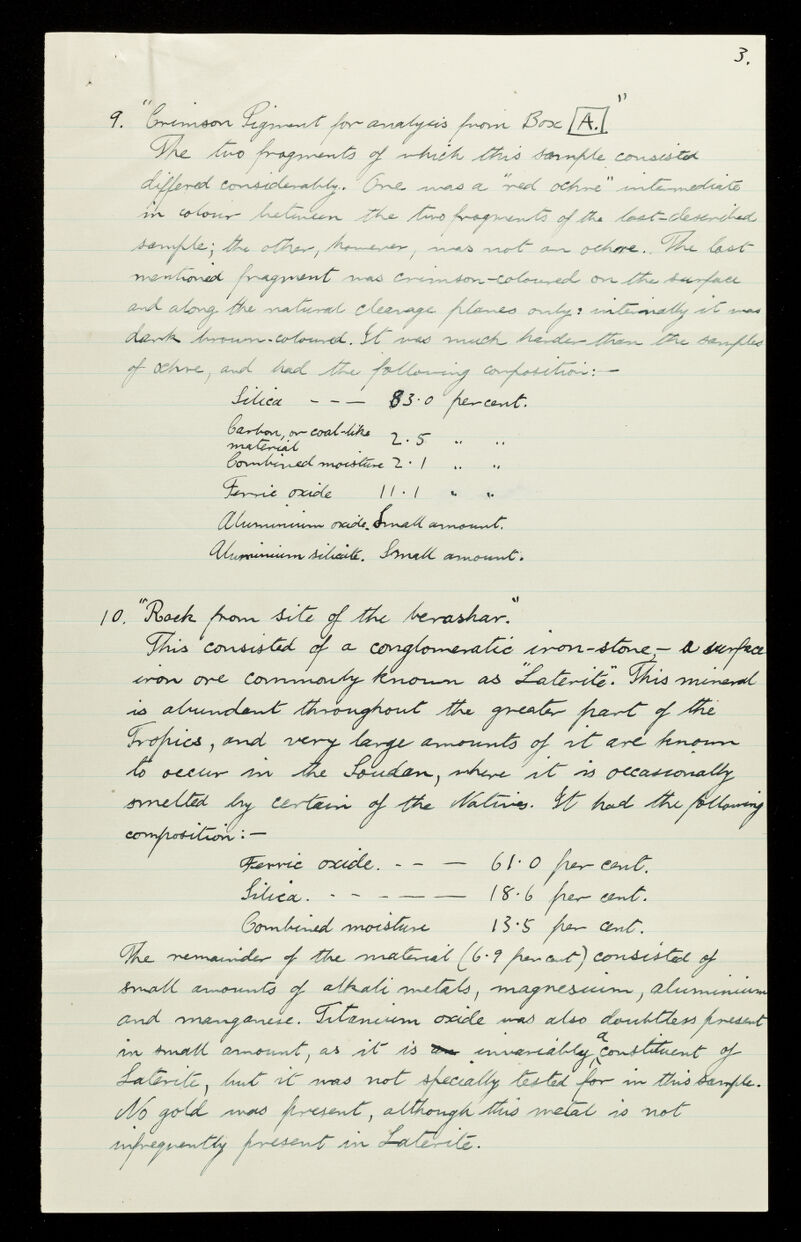 3.
9. "Crimson Pigment for analysis from Box [A.]"
The two fragments of which this sample consisted
differed considerably. One was a "red ochre" intermediate
in colour between the two fragments of the last-described
sample; the other, however, was not an ochre. The last
mentioned fragment was crimson-coloured on the surface
and along the natural cleavage planes only: internally it was
dark brown-coloured. It was much harder than the samples
of ochre, and had the following composition:—
Silica - - — 83·0 per cent.
Carbon, or coal-like
material 2·5 " "
Combined moisture 2·1 " "
Ferric oxide 11·1 " "
Aluminium oxide. Small amount.
Aluminium silicate. Small amount.
10. "Rock from site of the kerashar."
This consisted of a conglomeratic iron-stone,— a surface
iron ore commonly known as "Laterite". This mineral
is abundant throughout the greater part of the
Tropics, and very large amounts of it are known
to occur in the Soudan, where it is occasionally
smelted by certain of the Natives. It had the following
composition:—
Ferric oxide. - - — 61·0 per cent.
Silica. - - - — — — 18·6 per cent.
Combined moisture 13·5 per cent.
The remainder of the material (6·9 per cent) consisted of
small amounts of alkali metals, magnesium, aluminium
and manganese. Titanium oxide was also doubtless present
in small amount, as it is an invariably a constituent of
Laterite, but it was not specially tested for in this sample.
No gold was present, although this metal is not
infrequently present in Laterite.